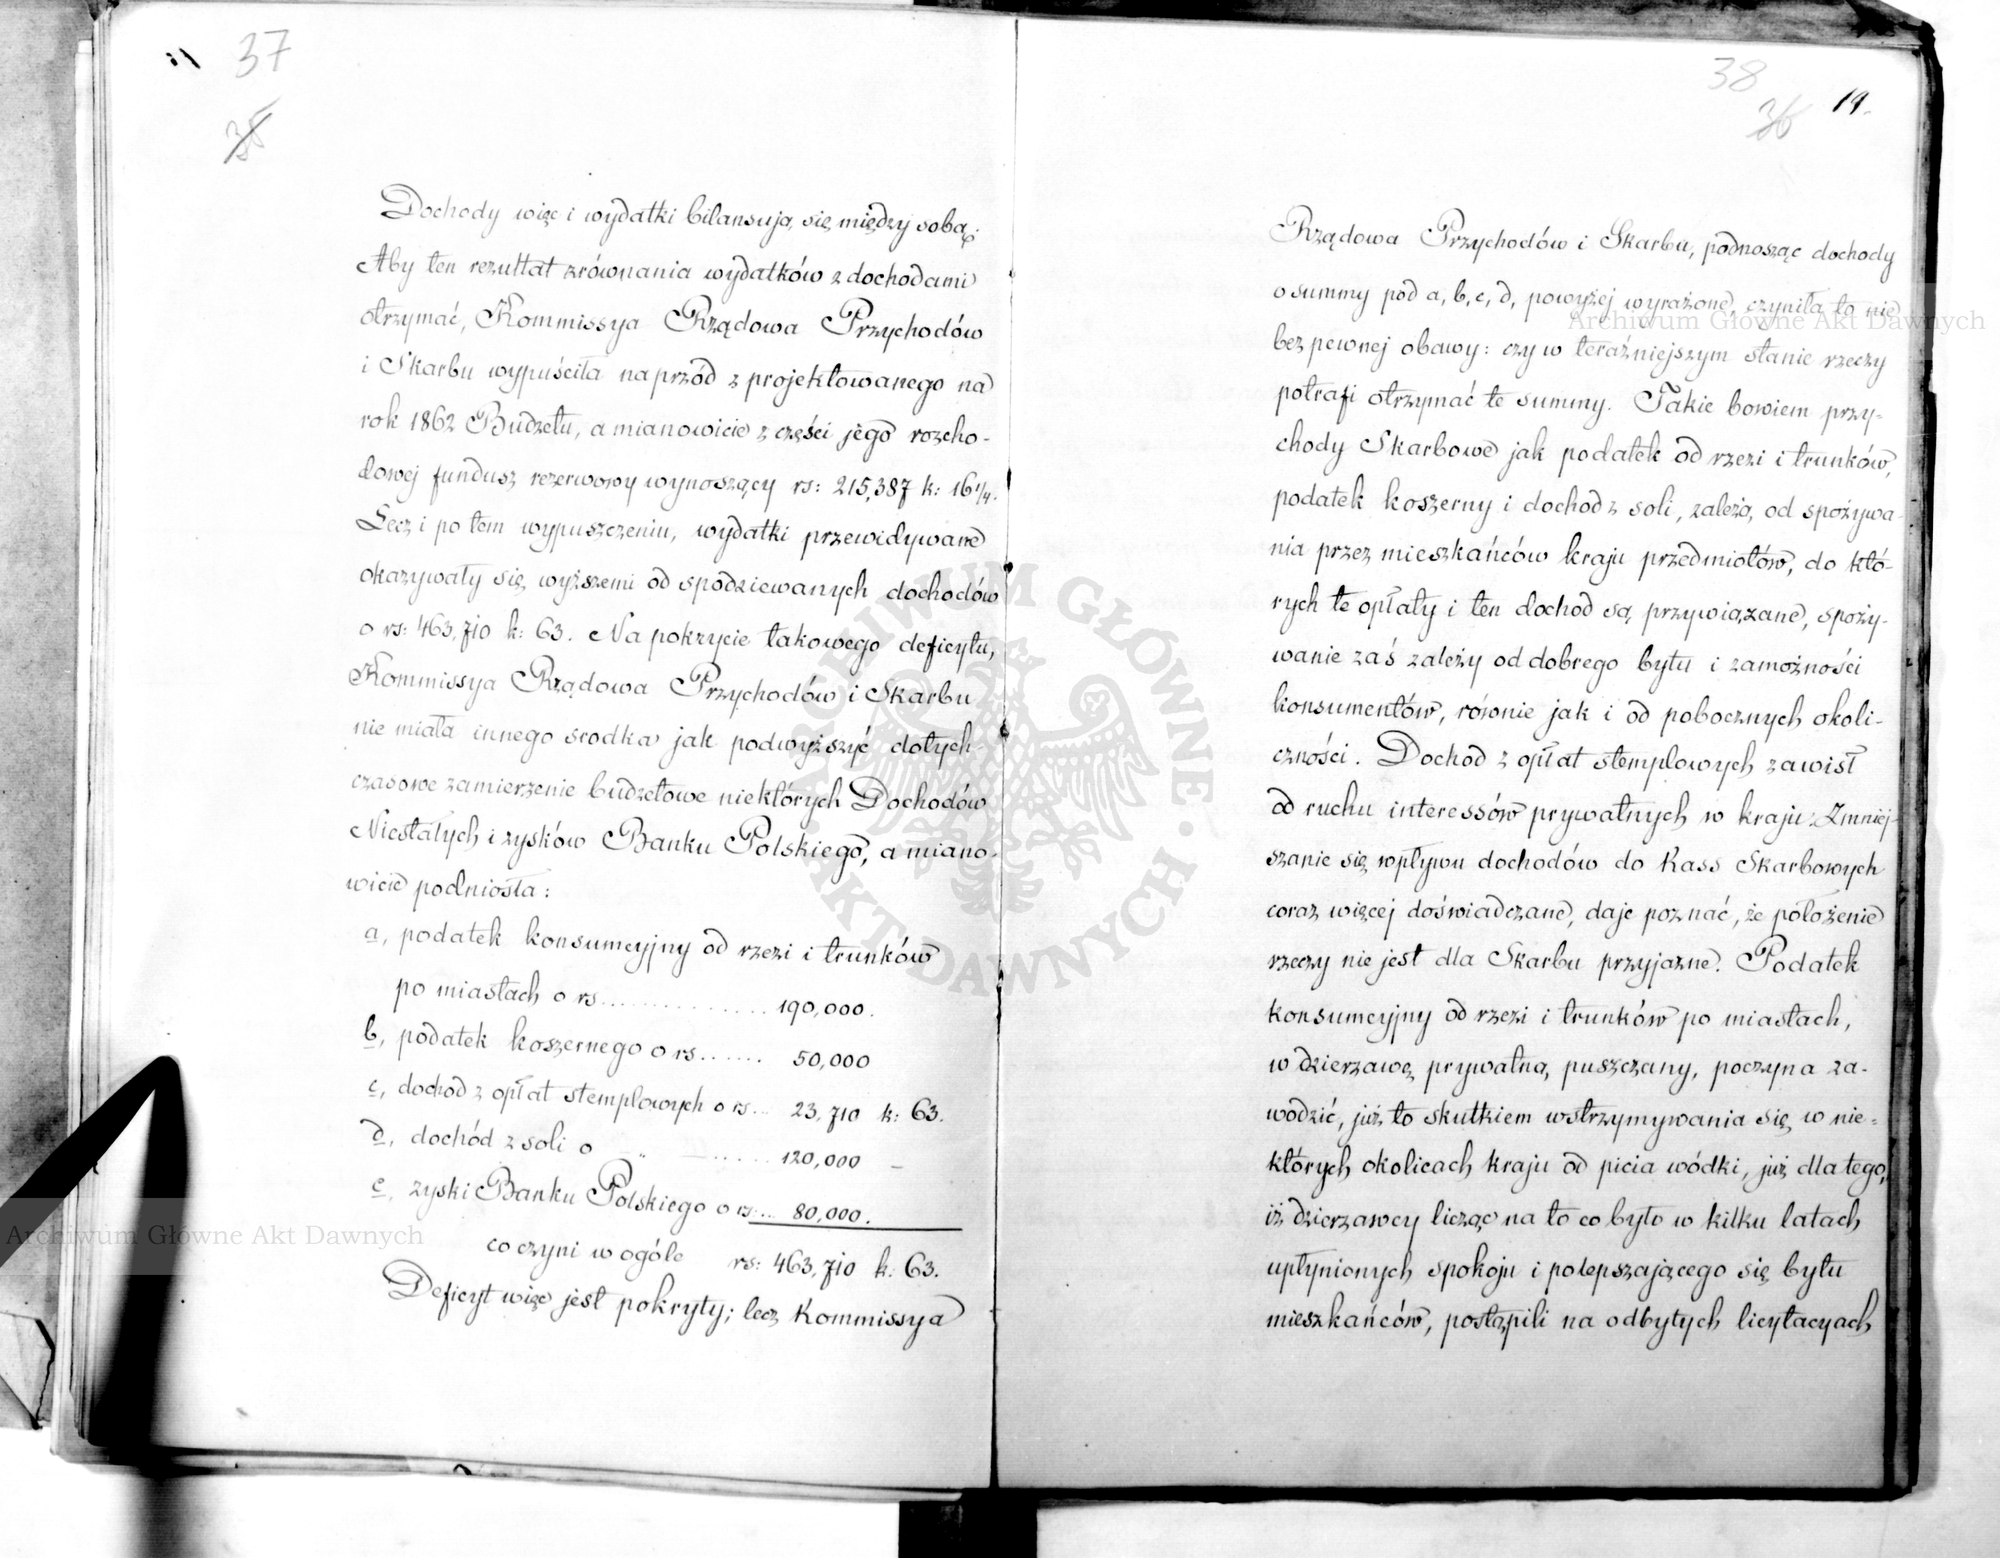 37
35
Dochody więc i wydatki bilansują się między sobą.
Aby ten rezultat zrównania wydatków z dochodami
otrzymać, Kommissya Rządowa Przychodów
i Skarbu wypuściła naprzód z projektowanego na
rok 1862 Budżetu, a mianowicie z części jego rozcho-
dowej fundusz rezerwowy wynoszący rs: 215,387 k: 16 1/4.
Lecz i po tem wypuszczeniu, wydatki przewidywane
okazywały się wyższemi od spodziewanych dochodów
o rs: 463,710 k: 63. Na pokrycie takowego deficytu,
Kommissya Rządowa Przychodów i Skarbu
nie miała innego srodka jak podwyższyć dotych-
czasowe zamierzenie budżetowe niektórych Dochodów
Niestałych i zysków Banku Polskiego, a miano-
wicie podniosła:
a, podatek konsumcyjny od rzezi i trunków
po miastach o rs.............. 190,000.
b, podatek koszernego o rs....... 50,000
c, dochod z opłat stemplowych o rs... 23,710 k: 63.
d, dochód z soli o „ — ...... 120,000 —
e, zyski Banku Polskiego o rs... 80,000.
co czyni w ogóle rs: 463,710 k: 63.
Deficyt więc jest pokryty; lecz Kommissya
38
36
19.
Rządowa Przychodów i Skarbu, podnosząc dochody
o summy pod a, b, c, d, powyżej wyrażone, czyniła to nie
bez pewnej obawy: czy w teraźniejszym stanie rzeczy
potrafi otrzymać te summy. Takie bowiem przy-
chody Skarbowe jak podatek od rzezi i trunków,
podatek koszerny i dochod z soli, zależą od spożywa-
nia przez mieszkańców kraju przedmiotów, do któ-
rych te opłaty i ten dochod są przywiązane, spoży-
wanie zaś zależy od dobrego bytu i zamożności
konsumentów, równie jak i od pobocznych okoli-
czności. Dochod z opłat stemplowych zawisł
od ruchu interessów prywatnych w kraju. Zmniej-
szanie się wpływu dochodów do Kass Skarbowych
coraz więcej doświadczane, daje poznać, że położenie
rzeczy nie jest dla Skarbu przyjazne. Podatek
konsumcyjny od rzezi i trunków po miastach,
w dzierzawę prywatną puszczany, poczyna za-
wodzić, już to skutkiem wstrzymywania się w nie-
których okolicach kraju od picia wódki, już dla tego,
iż dzierzawcy licząc na to co było w kilku latach
upłynionych spokoju i polepszającego się bytu
mieszkańców, postąpili na odbytych licytacyach
Archiwum Główne Akt Dawnych
Archiwum Główne Akt Dawnych
ARCHIWUM GŁÓWNE · AKT DAWNYCH ·